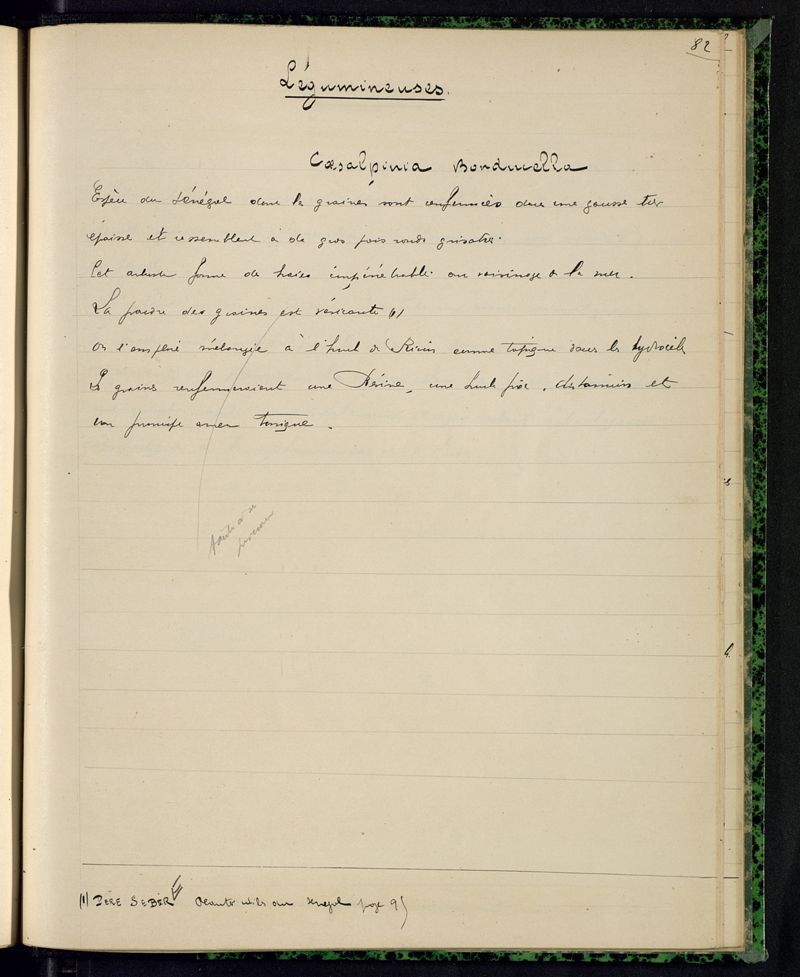 82
Légumineuses.
Cæsalpinia Bonducella
Espèce du Sénégal dont les graines sont renfermées dans une gousse très
épaisse et ressemblent à de gros pois ronds grisatres.
Cet arbuste forme de haies impénétrables au voisinage de la mer.
La poudre des graines est vésicante (1)
On l'emploie mélangée à l'huile de Ricin comme topique dans les hydrocèles
Les graines renfermeraient une Résine, une huile fixe, des tannins et
un principe amer tonique.
(1) PÈRE SEBIR Plantes utiles du Senegal page 95